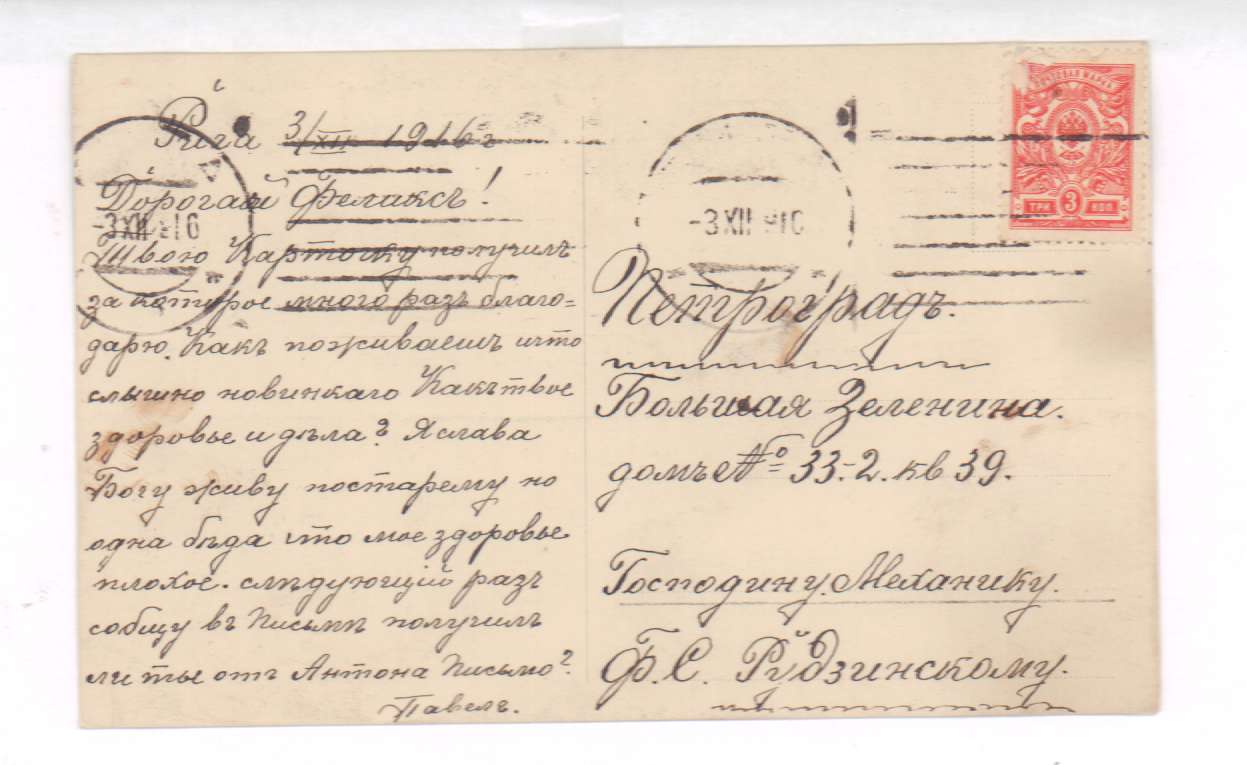 Рига 3/XII 1916 г
Дорогай Феликсъ!
Твою Карточку получилъ
за каторое много разъ благо=
дарю. Какъ поживаешъ ичто
слышно новинкаго Какътвое
здоровье и дѣла? Яслава
Богу живу постарему но
одна бѣда что мое здоровье
плохое. слѣдующій разъ
собщу въ Письмѣ получилъ
ли ты отъ Антона Письмо?
Павелъ.
-3XII 16
-3XII 916
ПОЧТОВАЯ МАРКА
ТРИ 3 КОП
Петроградъ.
Большая Зеленина.
домъ № 33-2. кв 39.
Господину Механику.
Ф. С. Рудзинскому.